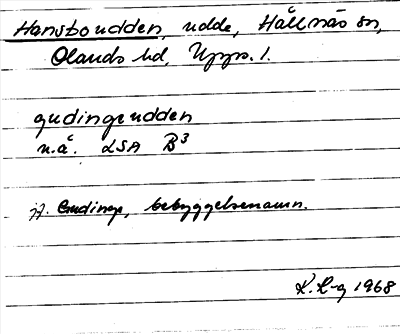 Hansboudden, udde, Hållnäs sn,
Olands hd, Upps. l.
gudingeudden
n.å. LSA B³
jf. Gudinge, bebyggelsenamn.
K. H-g 1968